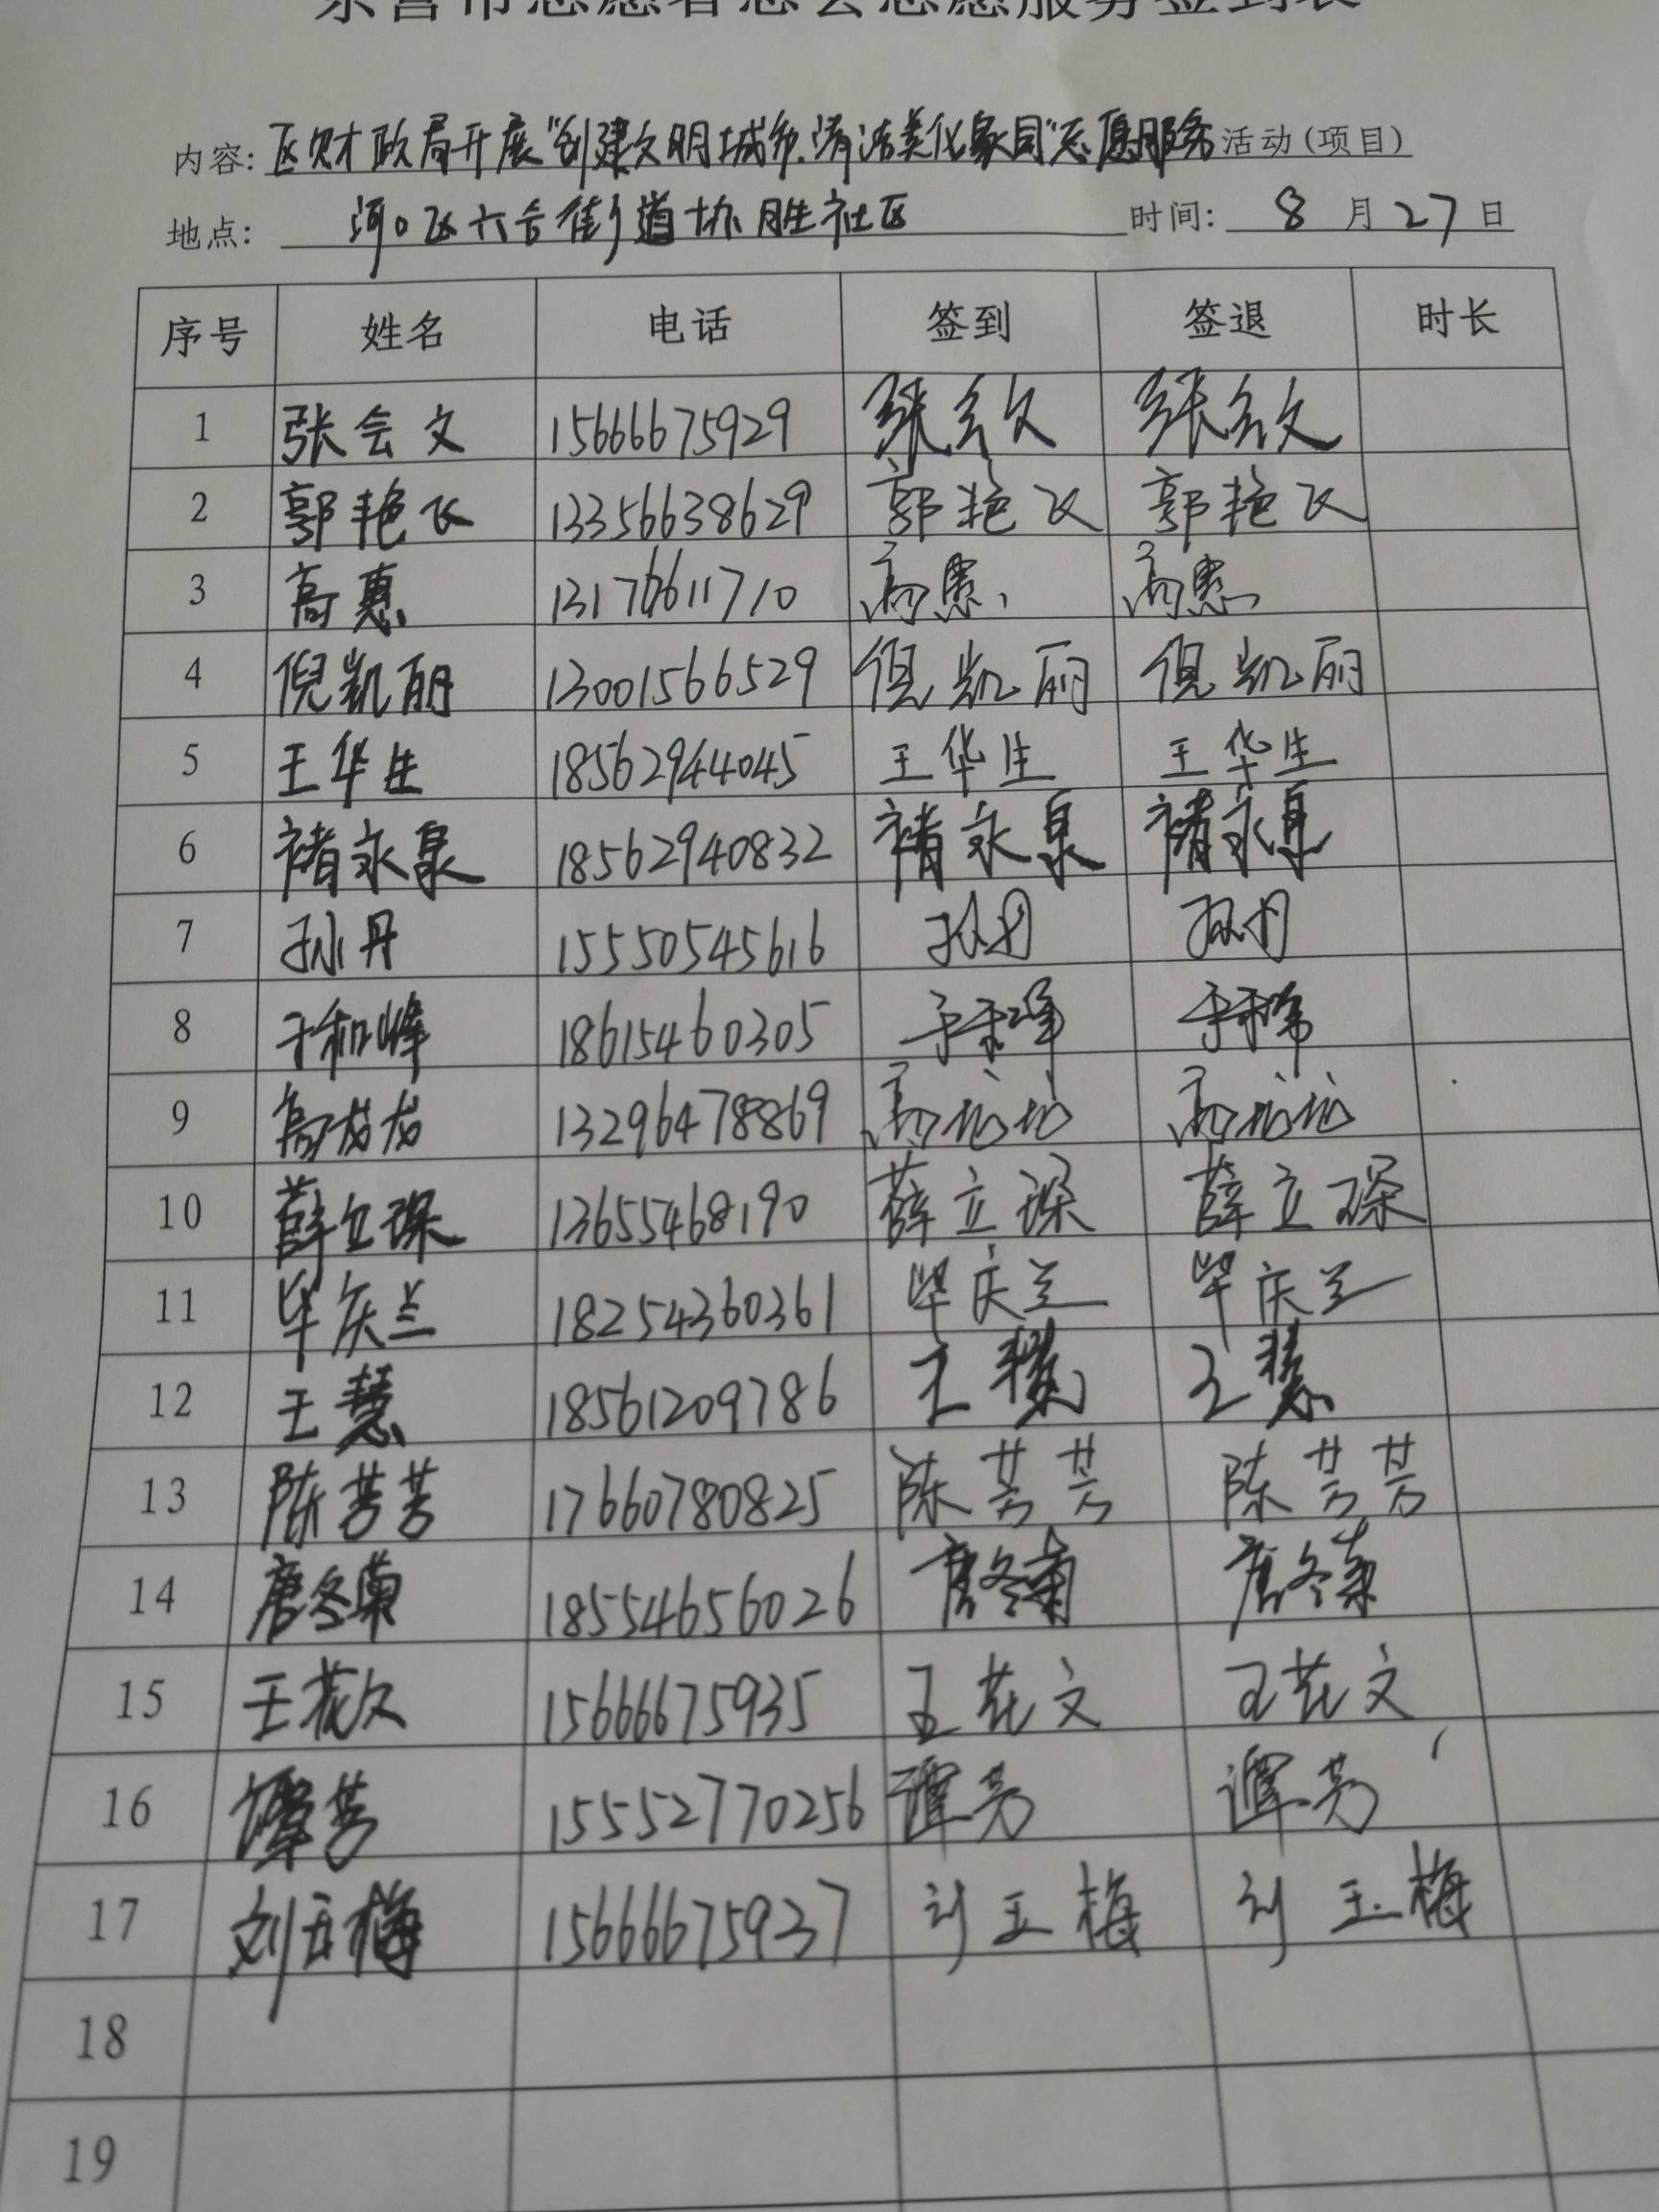 东营市志愿者总会志愿服务签到表
内容: 区财政局开展"创建文明城乡.清洁美化家园"志愿服务活动(项目)
地点: 河口区六合街道协胜社区 时间: 8月27日
序号 姓名 电话 签到 签退 时长
1 张会文 15666675929 张会文 张会文
2 郭艳飞 13356638629 郭艳飞 郭艳飞
3 高惠 13176611710 高惠 高惠
4 倪凯丽 13001566529 倪凯丽 倪凯丽
5 王华生 18562944045 王华生 王华生
6 褚永泉 18562940832 褚永泉 褚永泉
7 孙丹 15550545616 孙丹 孙丹
8 于和峰 18615460305 于和峰 于和峰
9 高龙龙 13296478869 高龙龙 高龙龙
10 薛立琛 13655468190 薛立琛 薛立琛
11 毕庆兰 18254360361 毕庆兰 毕庆兰
12 王慧 18561209786 王慧 王慧
13 陈芳芳 17660780825 陈芳芳 陈芳芳
14 唐冬菊 18554656026 唐冬菊 唐冬菊
15 王花文 15666675935 王花文 王花文
16 谭芳 15552770256 谭芳 谭芳
17 刘玉梅 15666675937 刘玉梅 刘玉梅
18
19